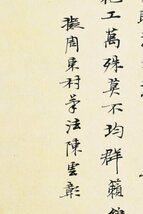 化工萬殊莫不均群籟
擬周東村筆法陳雲彰